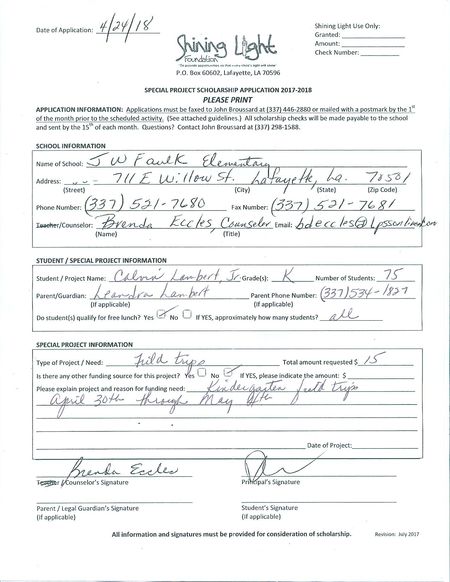 Date of Application: 4/24/18
Shining Light
Foundation
P.O. Box 60602, Lafayette, LA 70596
Shining Light Use Only:
Granted:
Amount:
Check Number:
SPECIAL PROJECT SCHOLARSHIP APPLICATION 2017-2018
PLEASE PRINT
APPLICATION INFORMATION: Applications must be faxed to John Broussard at (337) 446-2880 or mailed with a postmark by the 1st
of the month prior to the scheduled activity. (See attached guidelines.) All scholarship checks will be made payable to the school
and sent by the 15th of each month. Questions? Contact John Broussard at (337) 298-1588.
SCHOOL INFORMATION
Name of School: J W Faulk Elementary
Address: 711 E Willow St. Lafayette, La. 70501
(Street) (City) (State) (Zip Code)
Phone Number: (337) 521-7680 Fax Number: (337) 521-7681
Teacher/Counselor: Brenda Eccles, Counselor Email: bdeccles@
(Name) (Title)
STUDENT / SPECIAL PROJECT INFORMATION
Student / Project Name: Calvin Lambert, Jr. Grade(s): K Number of Students: 75
Parent/Guardian: Leandra Lambert Parent Phone Number: (337) 534-1827
(If applicable) (If applicable)
Do student(s) qualify for free lunch? Yes No If YES, approximately how many students? all
SPECIAL PROJECT INFORMATION
Type of Project / Need: Field trips Total amount requested $ 15
Is there any other funding source for this project? Yes No If YES, please indicate the amount: $
Please explain project and reason for funding need: Kindergarten field trips
April 30th through May
Date of Project:
Brenda Eccles
Teacher/Counselor's Signature Principal's Signature
Parent / Legal Guardian's Signature Student's Signature
(if applicable) (if applicable)
All information and signatures must be provided for consideration of scholarship. Revision: July 2017